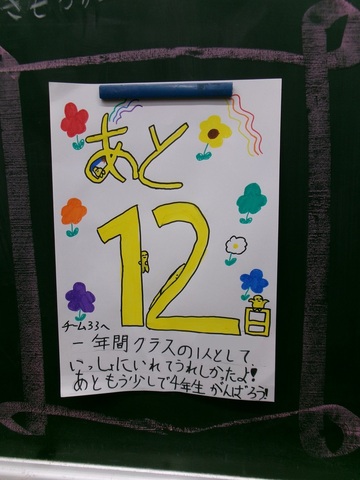 あと
12日
チーム33へ
一年間クラスの1人として、
いっしょにいれてうれしかったよ!
あともう少しで4年生がんばろう!